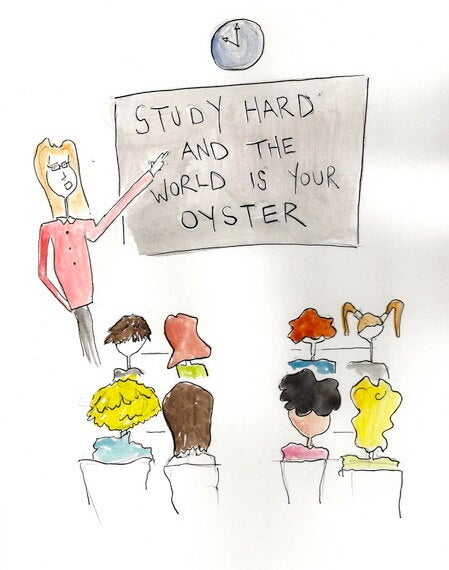 STUDY HARD
AND THE
WORLD IS YOUR
OYSTER